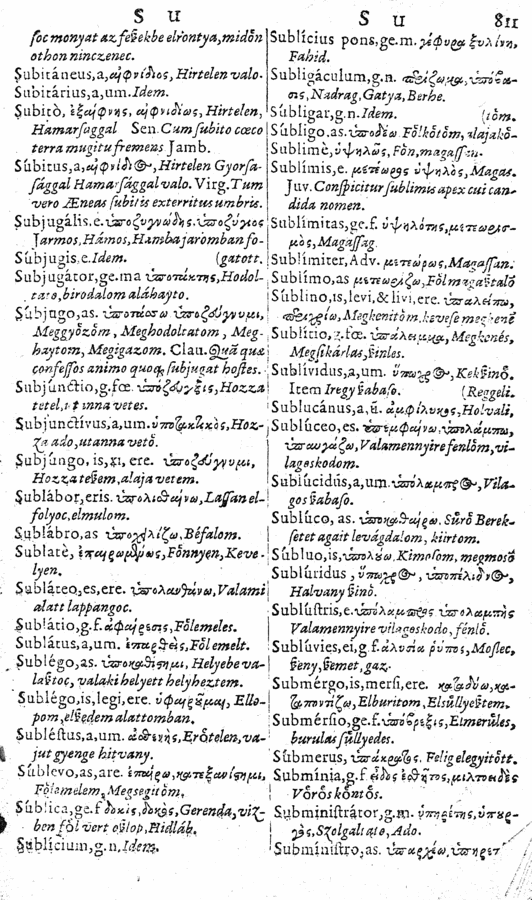 S U
S U 811
ſoc monyat az feẏekbe elrontya, midőn
othon ninczenec.
Subitáneus, a, αἰφνίδιος, Hirtelen valo.
Subitárius, a, um. Idem.
Subitò, ἐξαίφνης, αἰφνιδίως, Hirtelen,
Hamarſaggal Sen. Cum ſubito cœco
terra mugitu fremens Jamb.
Súbitus, a, αἰφνίδιος, Hirtelen Gyorſa-
ſággal Hamarſággal valo. Virg. Tum
vero Æneas ſubitis exterritus umbris.
Subjugális. e. ὑποζυγώδης. ὑποζύγιος
Jarmos, Hámos, Hamba jaromban fo-
Súbjugis, e. Idem. (gatott.
Subjugátor, ge. ma ὑποτάκτης, Hodol-
birodalom aláhayto.
Súbjugo, as. ὑποπιάζω ὑποζεύγνυμι,
Meggyőzőm, Meghodoltatom, Meg-
haytom, Megigazom. Clau. Quā quæ
confeſſos animo quoq; ſubjugat hoſtes.
Subjúnctio, g. fœ. ὑπόζευξις, Hozza
tetel, utánna vetes.
Subjunctívus, a, um. ὑποτακτικὸς, Hoz-
za ado, utanna vető.
Subjúngo, is, xi, ere. ὑποζεύγνυμι,
Hozza teẏem, alaja vetem.
Sublábor, eris. ὑπολισθαίνω, Laſſan el-
folyoc, elmulom.
Sublábro, as ὑποχειλίζω, Béfalom.
Sublatè, ἐπαιρομένως, Főnnyen, Keve-
lyen.
Subláteo, es, ere. ὑπολανθάνω, Valami
alatt lappangoc.
Sublátio, g. f. ἀφαίρεσις, Főlemeles.
Sublátus, a, um. ἐπαρθεὶς, Fől emelt.
Sublégo, as. ὑποκαθίστημι, Helyebe va-
laẏtoc, valaki helyett helyheztem.
Sublégo, is, legi, ere. ὑφαιροῦμαι, Elle-
pom, elẏedem alattomban.
Sublēſtus, a, um. ἀσθενὴς, Erőtelen, va-
jut gyenge hitvany.
Súblevo, as, are. ἐπαίρω, κατεξανίστημι,
Főlemelem, Megsegitőm.
Sública, ge. f δοκὶς, δοκὸς, Gerenda, viz-
ben fől vert oẏlop, Hidláb.
Sublícium, g. n, Idem.
Sublícius pons, ge. m. γέφυρα ξυλίνη,
Fahid.
Subligáculum, g. n. περίζωμα, ὑπόδε-
σις, Nadrag, Gatya, Berhe.
Súbligar, g. n. Idem. (tőm.
Súbligo, as. ὑποδέω Főlkőtőm, alajakő-
Sublimè, ὑψηλῶς, Főn, magaſſan.
Sublímis, e. μετέωρος ὑψηλὸς, Magas.
Juv. Conſpicitur ſublimis apex cui can-
dida nomen.
Sublímitas, ge. f. ὑψηλότης, μετεωρισ-
μὸς, Magaſſag.
Sublímiter, Adv. μετεώρως, Magaſſan.
Sublímo, as μετεωρίζω, Főlmagaẏtalő
Súblino, is, levi, & livi, ere. ὑπαλείφω,
περιχρίω, Megkenitőm, keveſe megkenē
Sublítio, g. fœ. ὑπάλειμμα, Megkenés,
Megſikárlas, ẏinles.
Sublívidus, a, um. ὕπωχρος, Kekẏinő.
Item Iregy ẏabaſo. (Reggeli.
Sublucánus, a, ū. ἀμφίλυκος, Holvali,
Sublúceo, es. ὑπεμφαίνω, ὑπολάμπω,
ὑπαυγάζω, Valamennyire fenlőm, vi-
lagoskodom.
Sublúcidus, a, um. ὑπόλαμπρος, Vila-
gos ẏabaſo.
Sublúco, as. ὑποκαθαίρω. Sűrő Berek-
ſetet agait levágdalom, kiirtom.
Súbluo, is, ὑπολύω, Kimoſom, megmoſő
Sublúridus, ὕπωχρος, ὑποπέλιδνος,
Halvany ẏinő.
Sublúſtris, e. ὑπόλαμπρος ὑπολαμπὴς
Valamennyire vilageskodo, fénlő.
Sublúvies, ei, g f. ἀλυσία ῥύπος, Moſlec,
ẏeny, ẏemet, gaz.
Submérgo, is, merſi, ere. καταδύω, κα-
ταποντίζω, Elburitom, Elsűllyeẏtem.
Submérſio, ge. f. ὑπόβρεξις, Elmerűles,
burulas ſűllyedes.
Súbmerus, ὑπάκρατος. Felig elegyitőtt.
Submínia, g. f εἶδος ἐσθῆτος, μιλτοειδὲς
Vőrős kőntős.
Subminiſtrátor, g. m. ὑπηρέτης, ὑπουρ-
γὸς, Szolgaltato, Ado.
Subminíſtro, as. ὑπαρχέω, ὑπηρετ